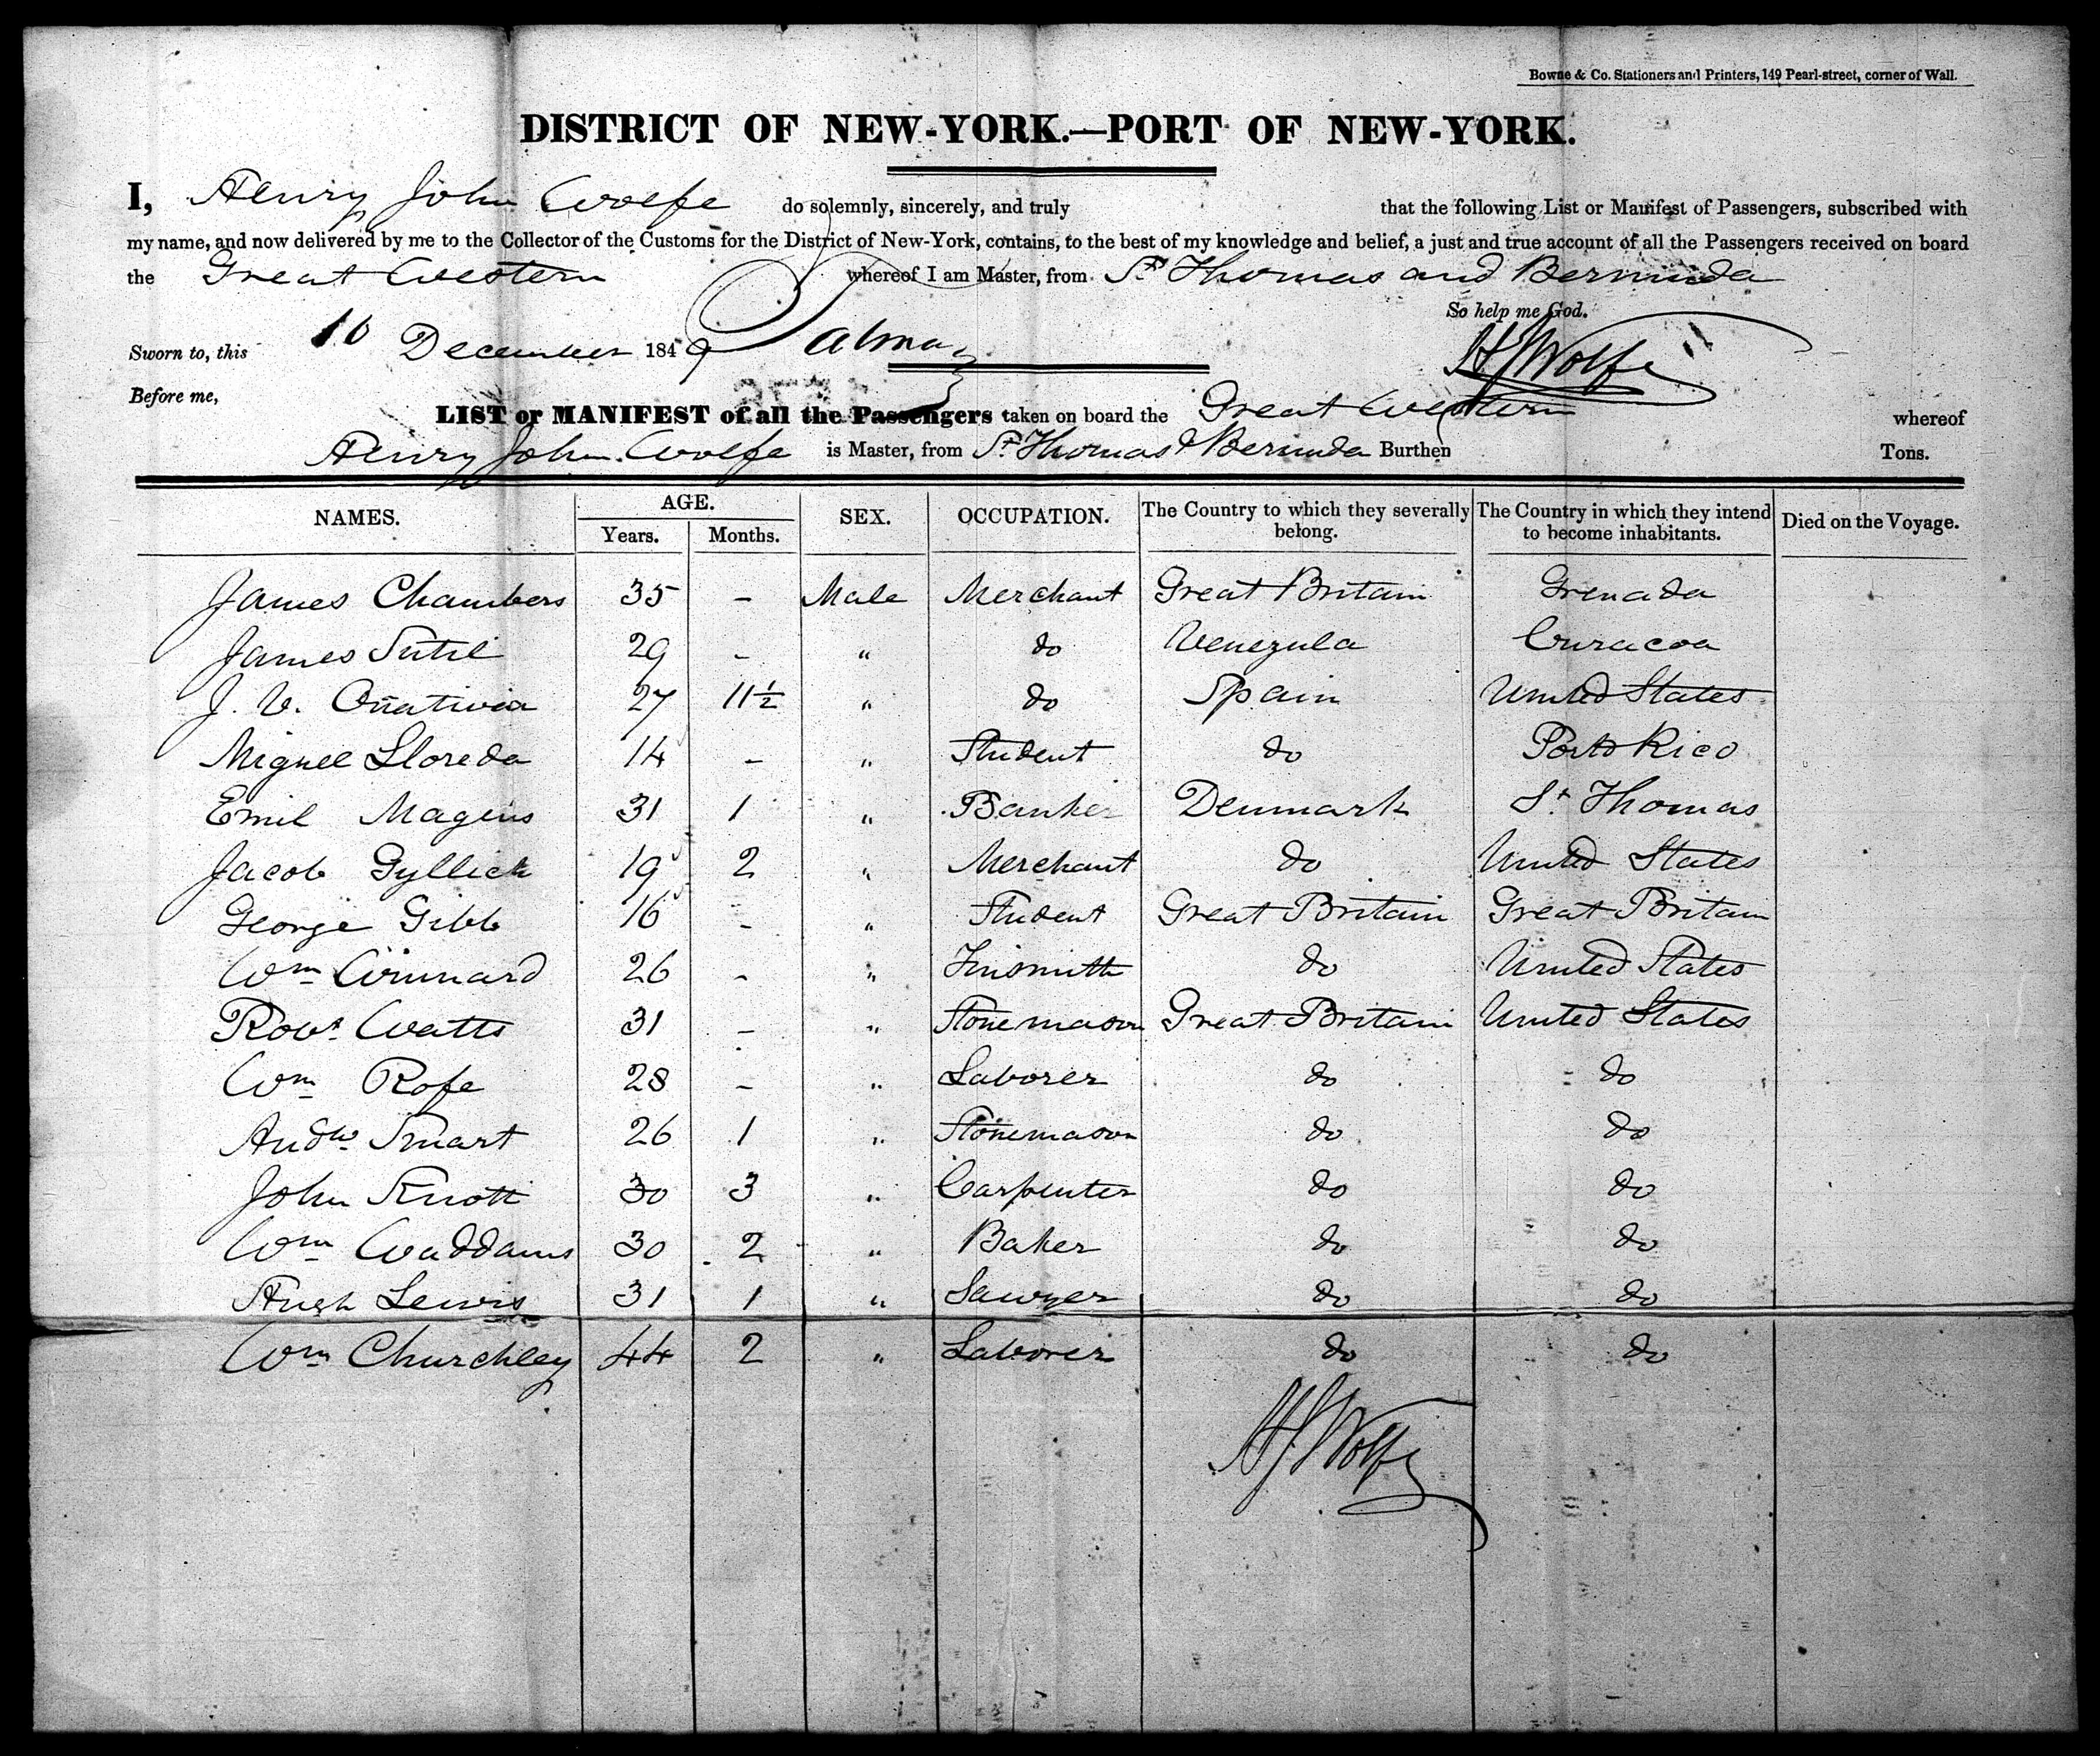 Bowne & Co. Stationers and Printers, 149 Pearl-street, corner of Wall.
DISTRICT OF NEW-YORK.—PORT OF NEW-YORK.
I, Henry John Wolfe do solemnly, sincerely, and truly that the following List or Manifest of Passengers, subscribed with
my name, and now delivered by me to the Collector of the Customs for the District of New-York, contains, to the best of my knowledge and belief, a just and true account of all the Passengers received on board
the Great Western whereof I am Master, from St Thomas and Bermuda
So help me God.
Sworn to, this 10 December 1849 HJWolfe
Before me,
LIST or MANIFEST of all the Passengers taken on board the Great Western whereof
Henry John Wolfe is Master, from St Thomas & Bermuda Burthen Tons.
NAMES. AGE. SEX. OCCUPATION. The Country to which they severally belong. The Country in which they intend to become inhabitants. Died on the Voyage.
Years. Months.
James Chambers 35 - Male Merchant Great Britain Grenada
James Sutil 29 - " do Venezula Curacoa
J. V. Oñativia 27 11½ " do Spain United States
Miguel Lloreda 14 - " Student do Porto Rico
Emil Magens 31 1 " Banker Denmark St Thomas
Jacob Gyllich 19 2 " Merchant do United States
George Gibb 16 - " Student Great Britain Great Britain
Wm Winnard 26 - " Tinsmith do United States
Robt Watts 31 - " Stonemason Great Britain United States
Wm Rofe 28 - " Laborer do do
Andw Smart 26 1 " Stonemason do do
John Knott 30 3 " Carpenter do do
Wm Waddams 30 2 " Baker do do
Hugh Lewis 31 1 " Sawyer do do
Wm Churchley 44 2 " Laborer do do
HJWolfe